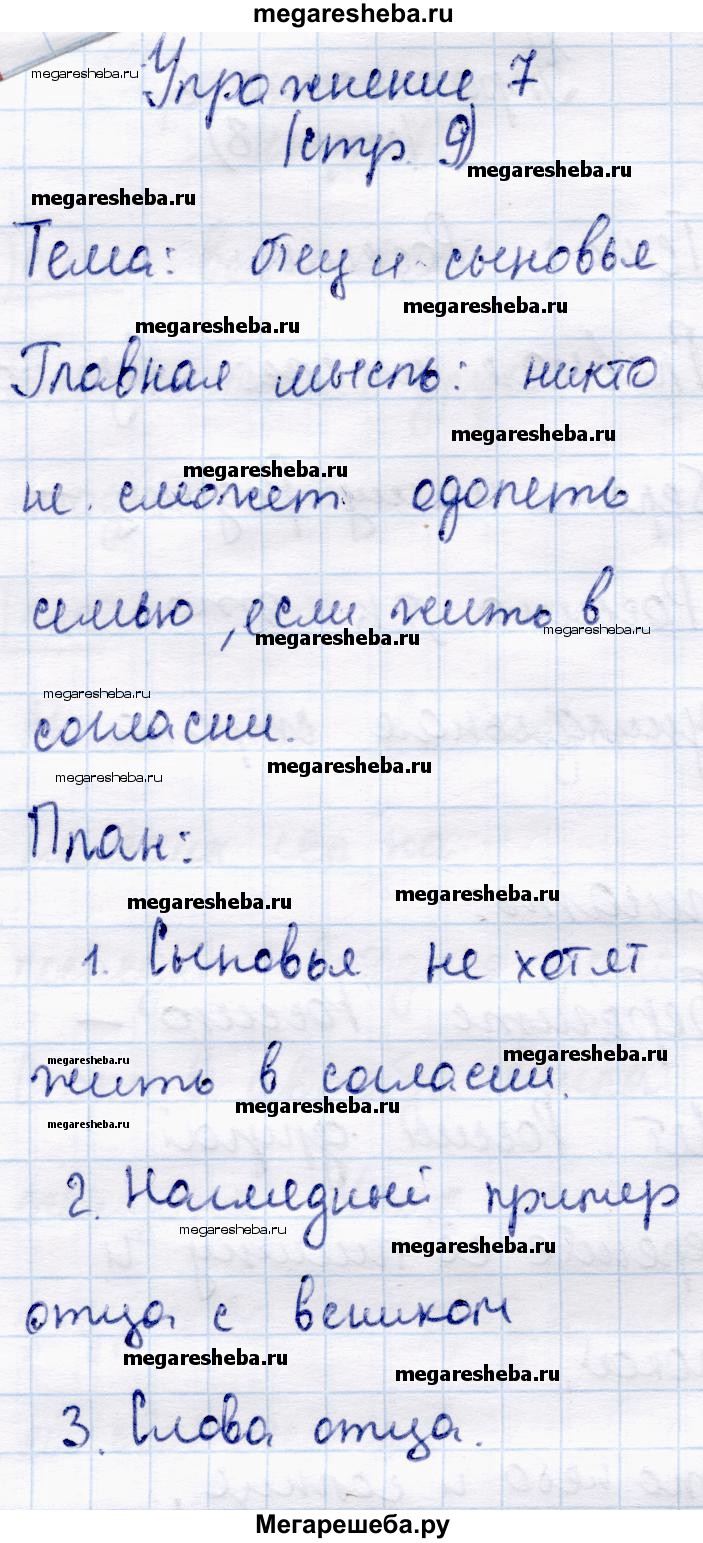 megaresheba.ru
Упражнение 7
megaresheba.ru
(стр. 9)
megaresheba.ru
megaresheba.ru
Тема: отец и сыновья
megaresheba.ru
megaresheba.ru
Главная мысль: никто
megaresheba.ru
megaresheba.ru
не сможет одолеть
семью, если жить в
megaresheba.ru
megaresheba.ru
megaresheba.ru
согласии.
megaresheba.ru
megaresheba.ru
План:
megaresheba.ru
megaresheba.ru
1. Сыновья не хотят
megaresheba.ru
megaresheba.ru
жить в согласии.
megaresheba.ru
megaresheba.ru
2. Наглядный пример
megaresheba.ru
megaresheba.ru
отца с веником
megaresheba.ru
megaresheba.ru
3. Слова отца.
Мегарешеба.ру